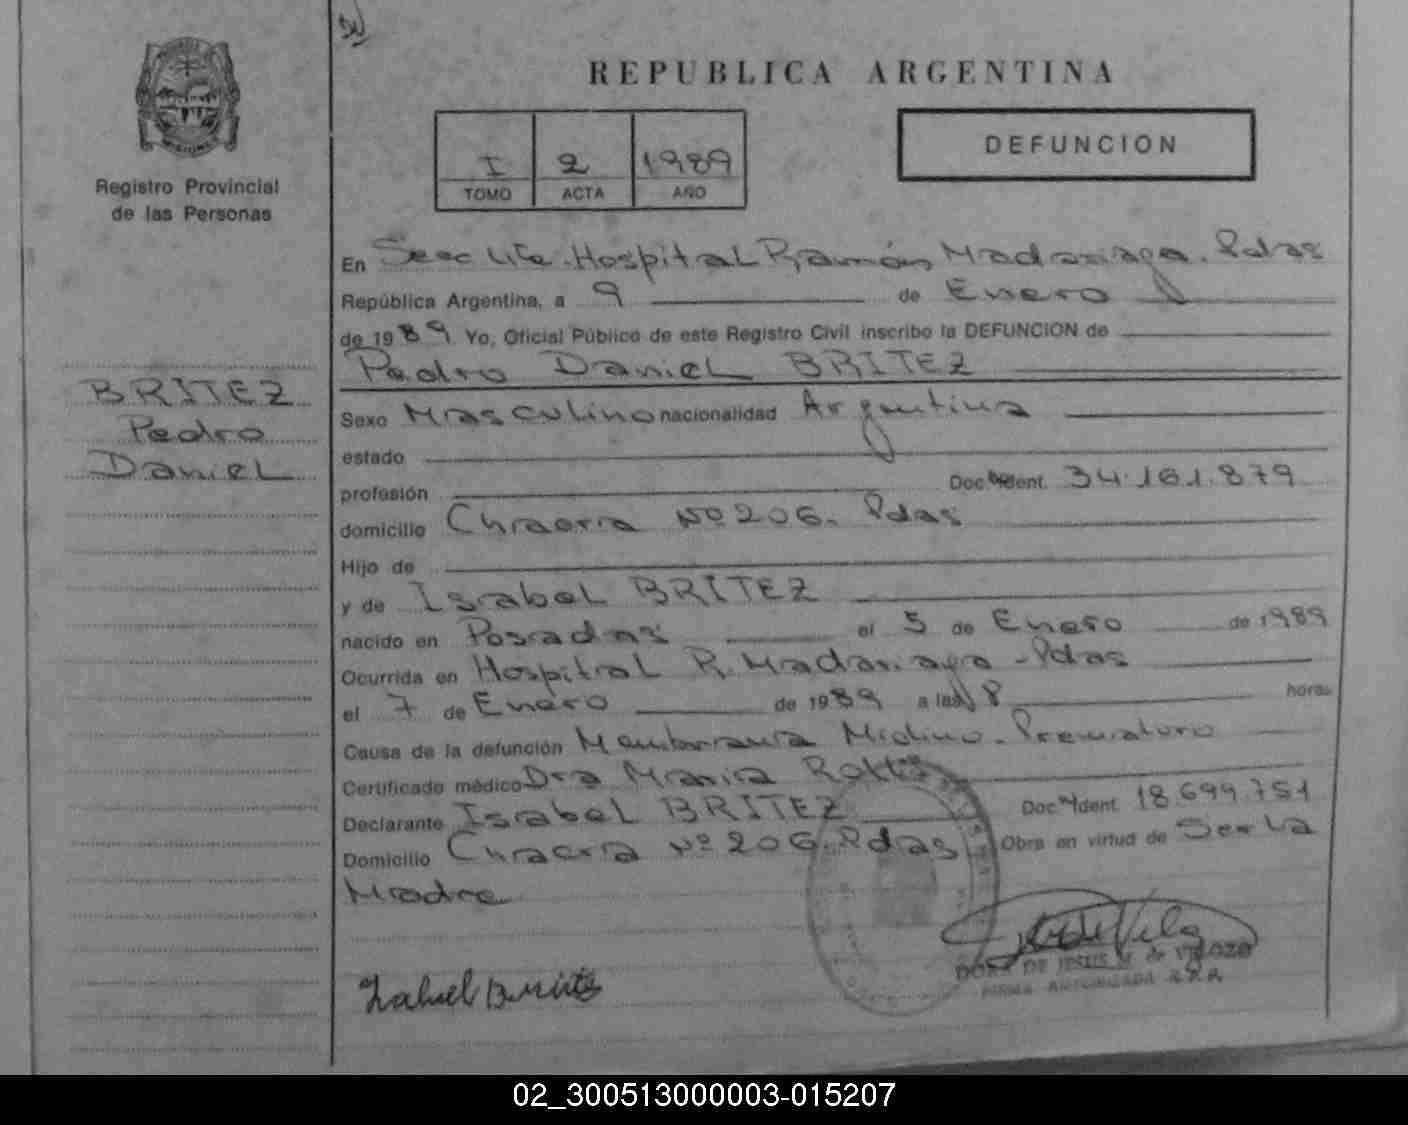 REPUBLICA ARGENTINA
MISIONES
Registro Provincial
de las Personas
I 2 1989
TOMO ACTA AÑO
DEFUNCION
En Secc Hospital Ramón Madariaga. Pdas
República Argentina, a 9 de Enero
de 1989 Yo, Oficial Público de este Registro Civil inscribo la DEFUNCION de
Pedro Daniel BRITEZ
BRITEZ
Pedro
Daniel
Sexo Masculino nacionalidad Argentina
estado
profesión Doc. Ident. 34.161.879
domicilio Chacra Nº 206. Pdas
Hijo de
y de Isabel BRITEZ
nacido en Posadas el 5 de Enero de 1989
Ocurrida en Hospital R. Madariaga - Pdas
el 7 de Enero de 1989 a las 18 horas
Causa de la defunción Membrana Hialina - Prematuro
Certificado médico Dra Maria
Declarante Isabel BRITEZ Doc. Ident. 18.699.751
Domicilio Chacra Nº 206. Pdas Obra en virtud de Ser la
Madre
Isabel Britez
DORA DE JESUS V. de
FIRMA AUTORIZADA R.P.P.
02_300513000003-015207